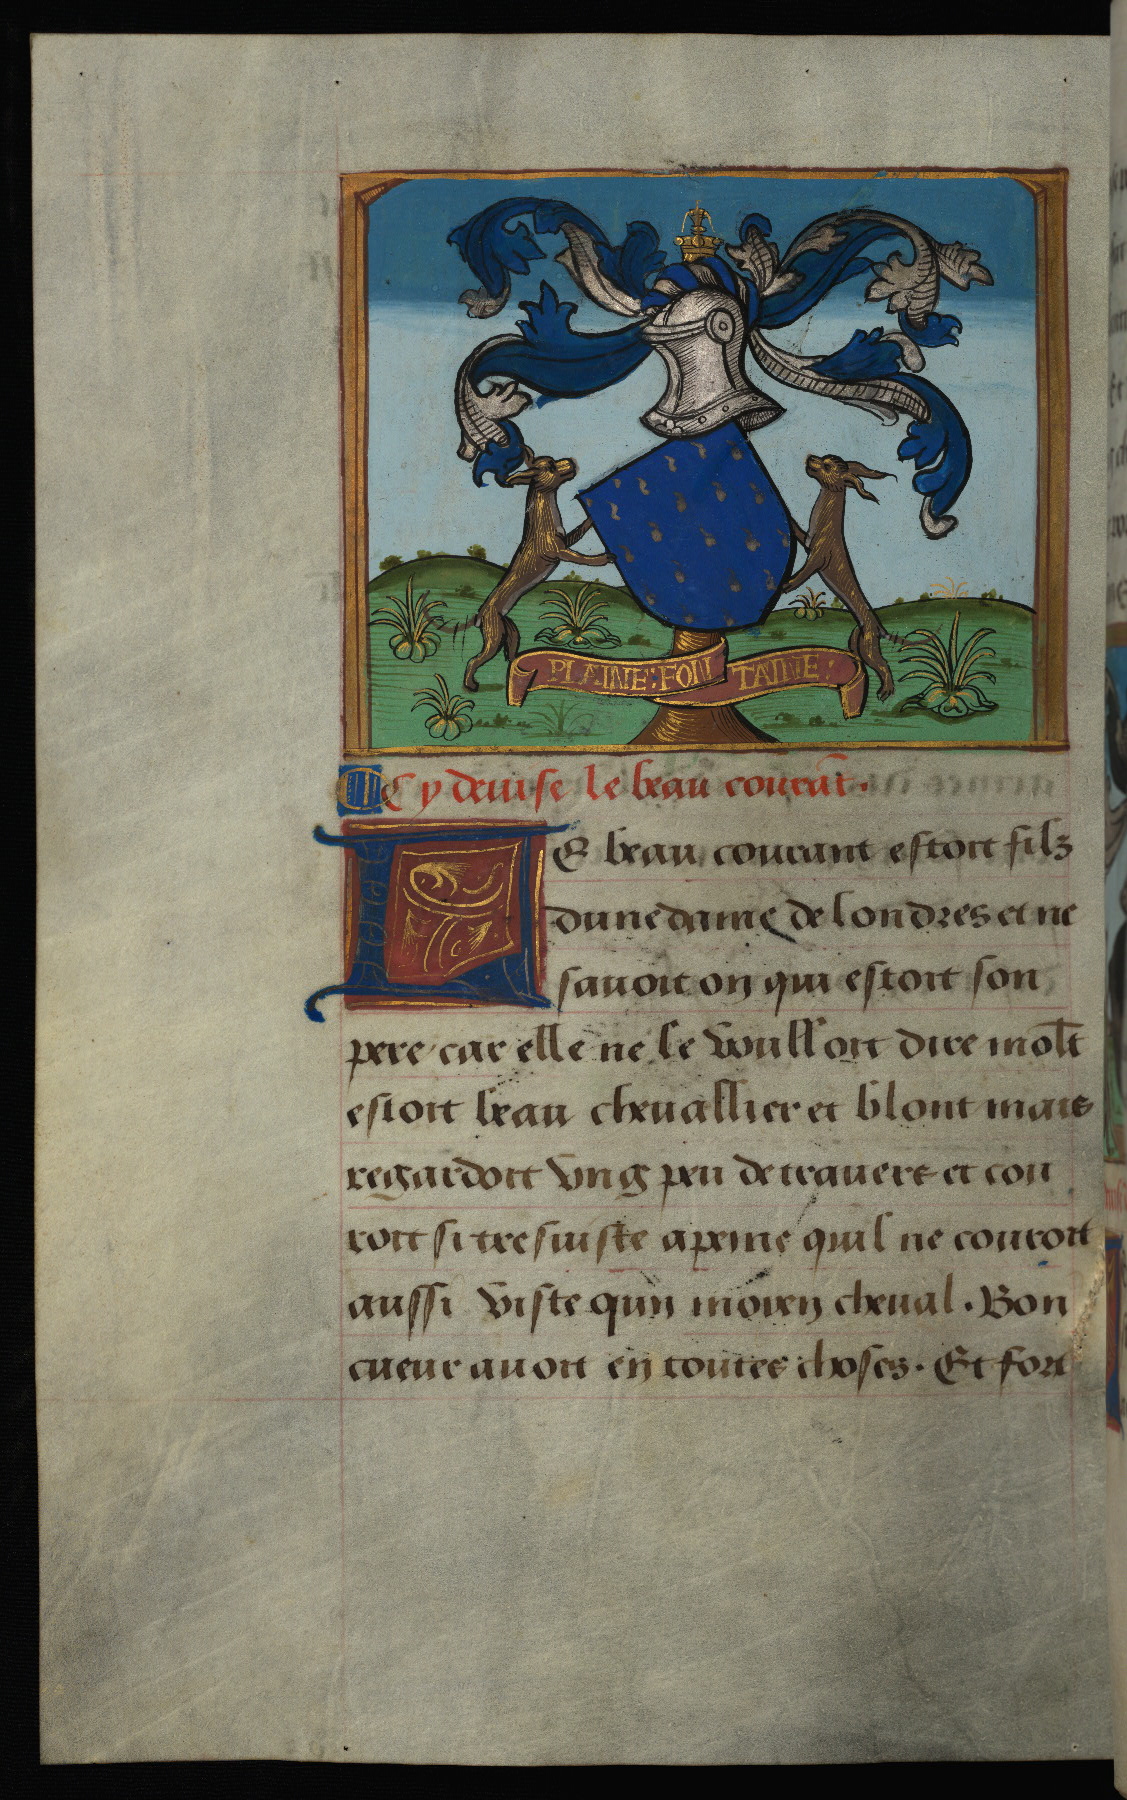 PLAINE : FON TAINE :
Cy deuise le beau courāt .
LE beau courant estoit filz
dune dame de londres et ne
sauoit on qui estoit son
pere car elle ne le voulloit dire molt
estoit beau cheuallier et blont mais
regardoit vng peu de trauers et cou
roit si tresviste apeine quil ne couroit
aussi viste qun moien cheual . Bon
cueur auoit en toutes choses . Et fort